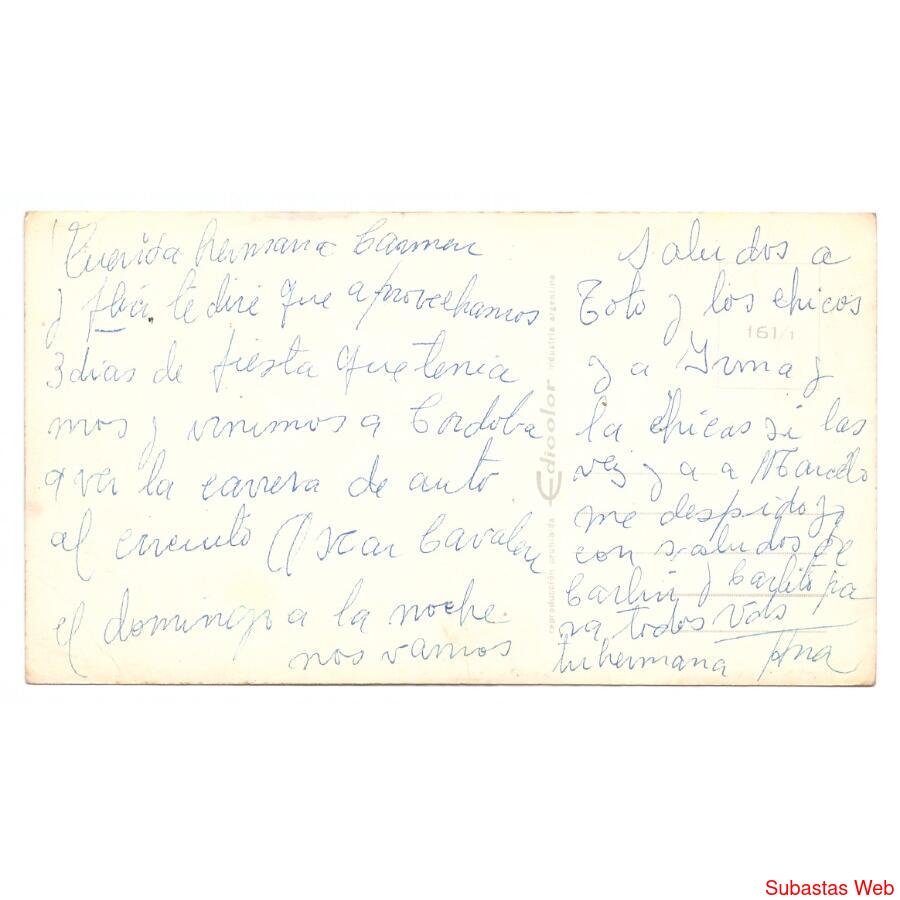 Querida hermana Carmen
y flia. te dire que aprovechamos
3 dias de fiesta que tenia
mos y vinimos a Cordoba
a ver la carrera de auto
al circuito Oscar Cavalen
el domingo a la noche
nos vamos
Saludos a
Toto y los chicos
y a Irma y
la chicas si las
vez y a a Marcelo
me despido
con saludos de
Carlin y Carlito pa
ra todos Vds
tu hermana Ana
161/1
Edicolor
industria argentina
reproducción prohibida
Subastas Web